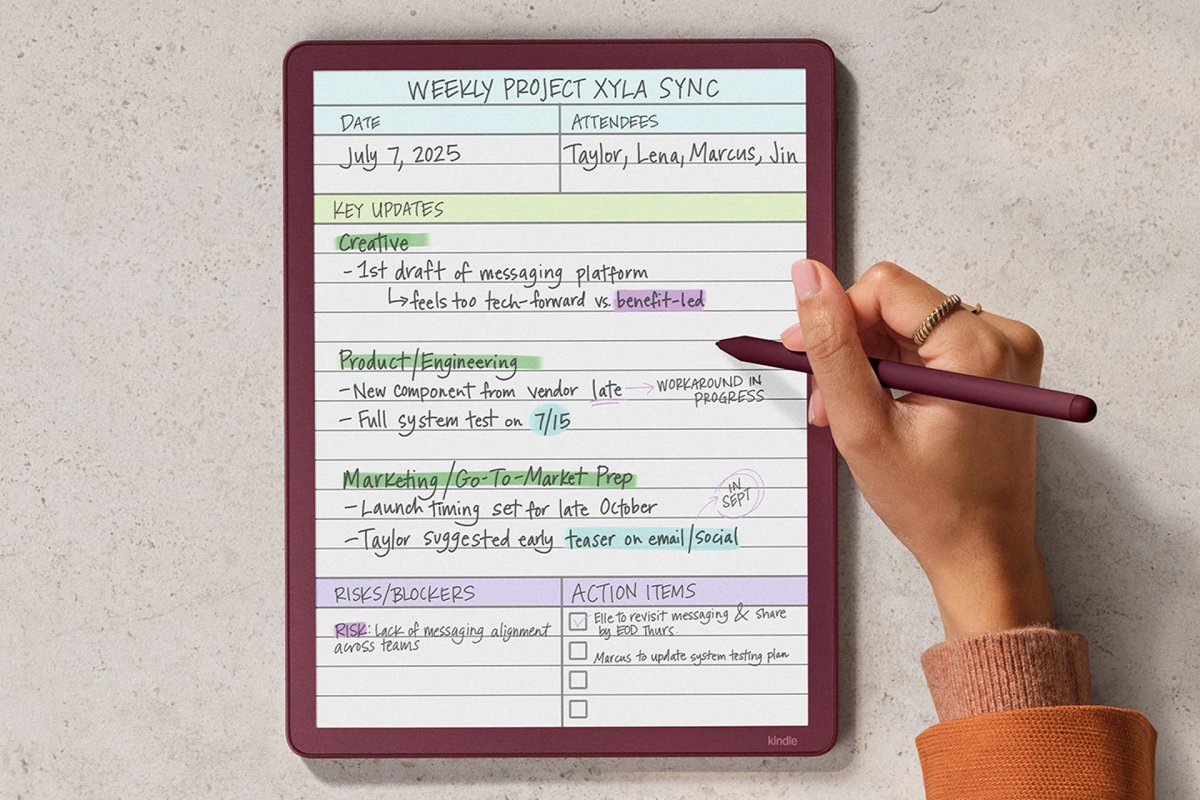 WEEKLY PROJECT XYLA SYNC
DATE
ATTENDEES
July 7, 2025
Taylor, Lena, Marcus, Jin
KEY UPDATES
Creative
- 1st draft of messaging platform
↳ feels too tech-forward vs. benefit-led
Product/Engineering
- New component from vendor late → WORKAROUND IN
PROGRESS
- Full system test on 7/15
Marketing/Go-To-Market Prep
- Launch timing set for late October
IN
SEPT
- Taylor suggested early teaser on email/social
RISKS/BLOCKERS
RISK: Lack of messaging alignment
across teams
ACTION ITEMS
Elle to revisit messaging & share
by EOD Thurs.
Marcus to update system testing plan
kindle